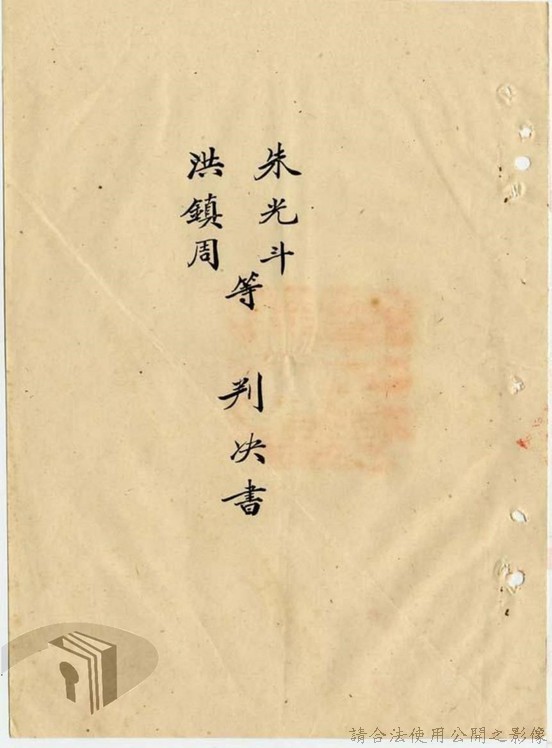 朱光斗
洪鎮周
等
判决書
請合法使用公開之影像